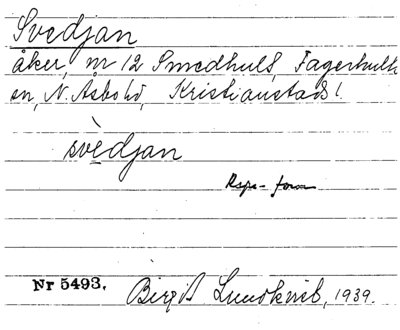 Svedjan
åker, nr 12 Smedhult, Fagerhult
sn, N. Åsbo hd, Kristianstads l.
svèdjan
Rspr-form
Nr 5493. Birgit Lundkvist, 1939.